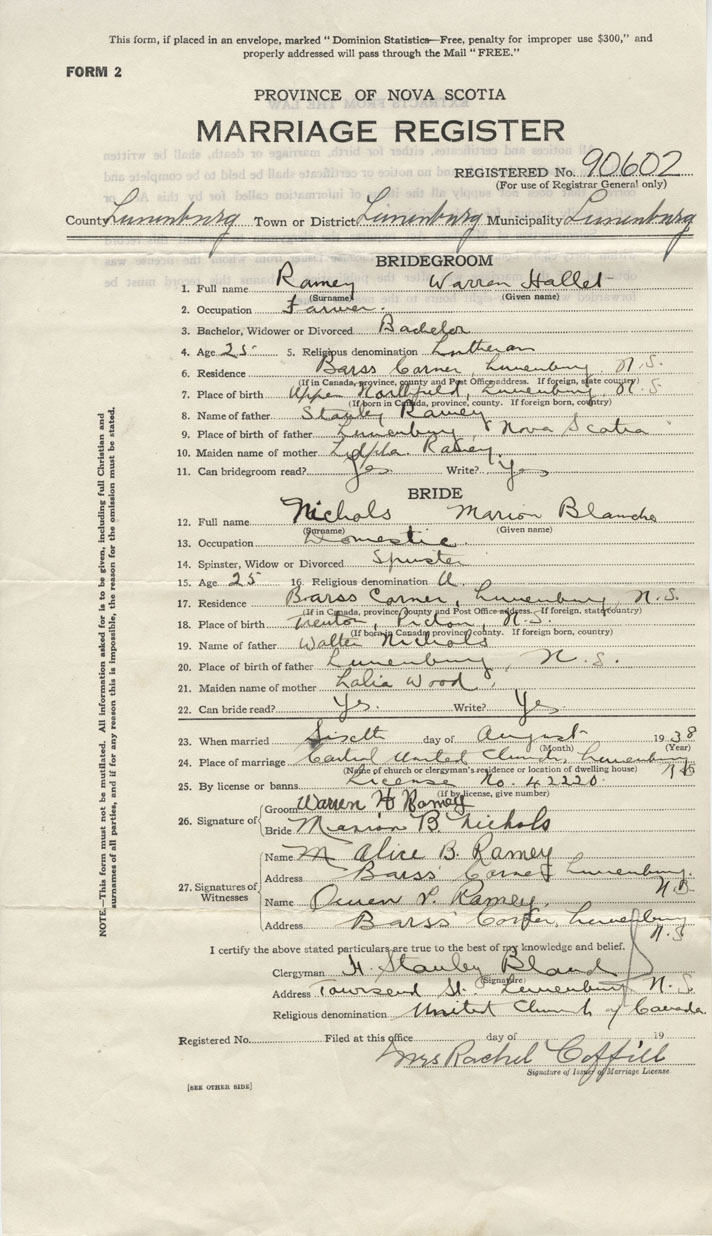 This form, if placed in an envelope, marked "Dominion Statistics—Free, penalty for improper use $300," and
properly addressed will pass through the Mail "FREE."
FORM 2
PROVINCE OF NOVA SCOTIA
MARRIAGE REGISTER
REGISTERED No. 90602
(For use of Registrar General only)
County Lunenburg Town or District Lunenburg Municipality Lunenburg
BRIDEGROOM
1. Full name Ramey Warren Hallet
(Surname) (Given name)
2. Occupation Farmer.
3. Bachelor, Widower or Divorced Bachelor
4. Age 25 5. Religious denomination Lutheran
6. Residence Barss Corner, Lunenburg, N.S.
(If in Canada, province, county and Post Office address. If foreign, state country)
7. Place of birth Upper Northfield, Lunenburg, N.S
(If born in Canada, province, county. If foreign born, country)
8. Name of father Stanley Ramey
9. Place of birth of father Lunenburg, Nova Scotia
10. Maiden name of mother Ramey.
11. Can bridegroom read? Yes Write? Yes
BRIDE
12. Full name Nichols Marion Blanche
(Surname) (Given name)
13. Occupation Domestic
14. Spinster, Widow or Divorced Spinster
15. Age 25 16. Religious denomination U.
17. Residence Barss Corner, Lunenburg, N.S.
(If in Canada, province, county and Post Office address. If foreign, state country)
18. Place of birth Trenton, Pictou, N.S.
(If born in Canada, province, county. If foreign born, country)
19. Name of father Walter Nichols
20. Place of birth of father Lunenburg, N.S.
21. Maiden name of mother Lalia Wood
22. Can bride read? Yes. Write? Yes.
23. When married Sixth day of August 1938
(Month) (Year)
24. Place of marriage Central United Church, Lunenburg N.S
(Name of church or clergyman's residence or location of dwelling house)
25. By license or banns License No. 42220
(If by license, give number)
26. Signature of Groom Warren H Ramey
Bride Marion B. Nichols
27. Signatures of Witnesses
Name M Alice B. Ramey
Address Barss' Corner Lunenburg. N.S.
Name Owen P. Ramey.
Address Barss' Corner, Lunenburg N.S
I certify the above stated particulars are true to the best of my knowledge and belief.
Clergyman H. Stanley Bland
(Signature)
Address Townsend St. Lunenburg N.S.
Religious denomination United Church of Canada
Registered No. Filed at this office day of 19
Mrs Rachel Coffill
Signature of Issuer of Marriage License
[SEE OTHER SIDE]
NOTE.—This form must not be mutilated. All information asked for is to be given, including full Christian and
surnames of all parties, and if for any reason this is impossible, the reason for the omission must be stated.